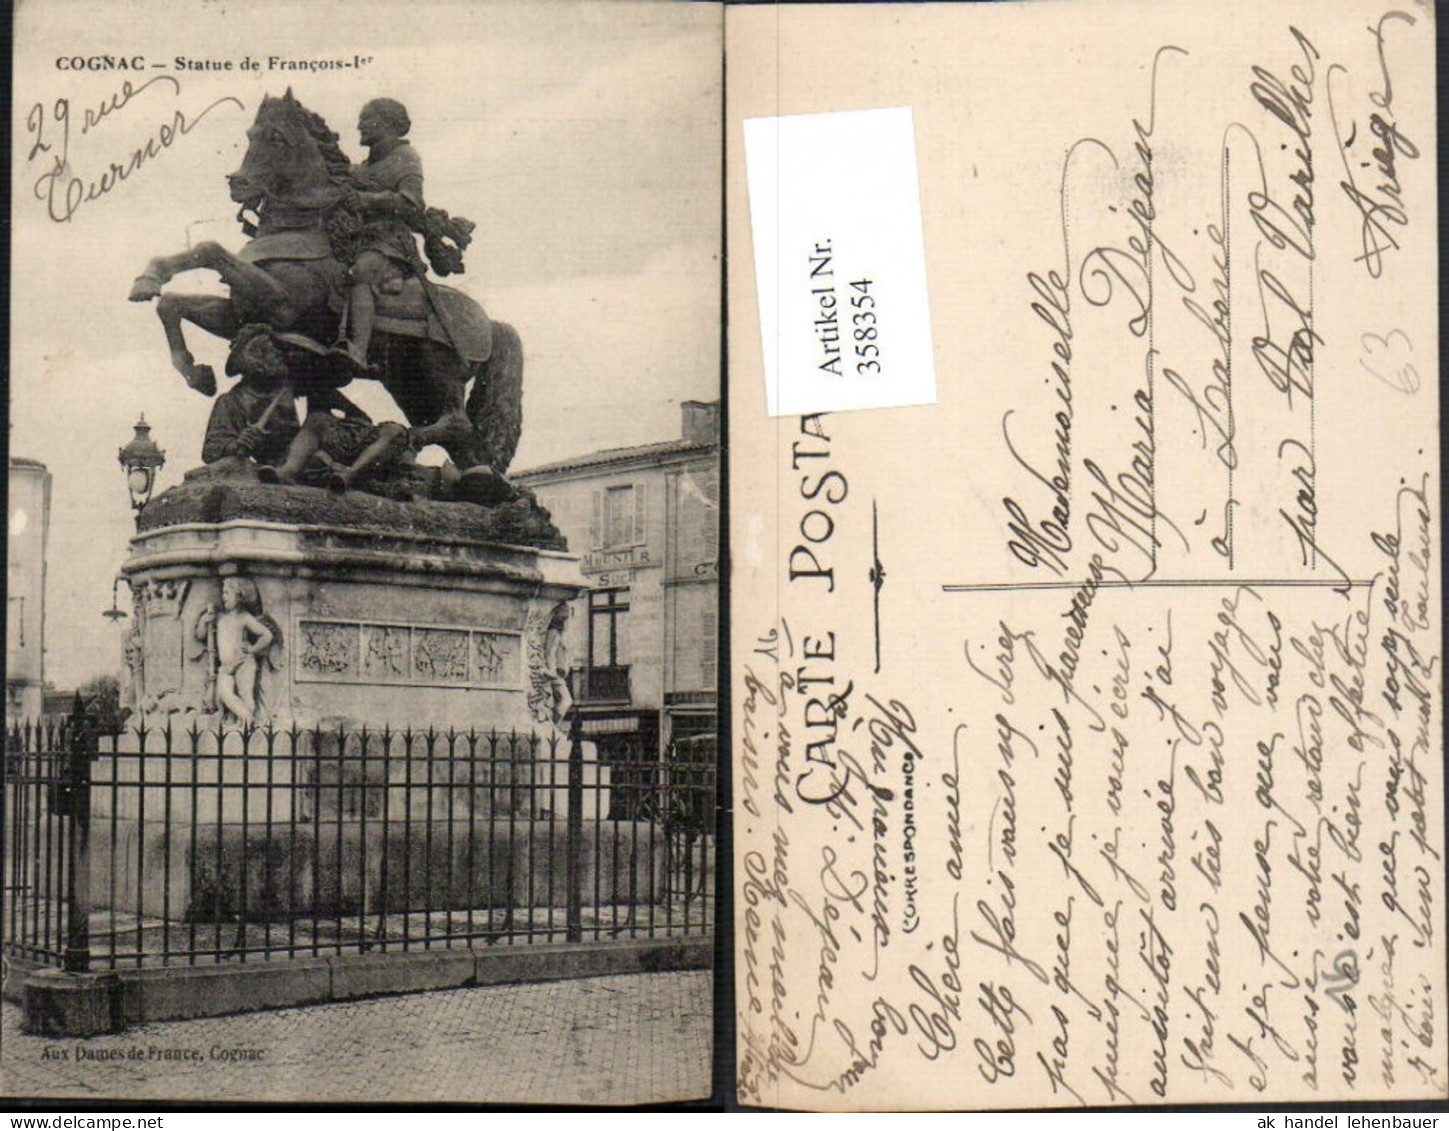 COGNAC — Statue de François-Ier
29 rue
Turner
MOUNIER
SUCR
Aux Dames de France, Cognac
Artikel Nr.
358354
CARTE POSTA
CORRESPONDANCE
Mademoiselle
Maria Dejean
à Labarie
par Val Varilhes
Ariège
63
Chère amie
Cette fois vous ne direz
pas que je suis paresseuse
puisque je vous écris
aussitôt arrivée j'ai
fait un très bon voyage
et je pense que vous
aussi votre retour chez
vous s'est bien effectué
malgré que vous soyez seule
baisers. Marie
ak handel lehenbauer